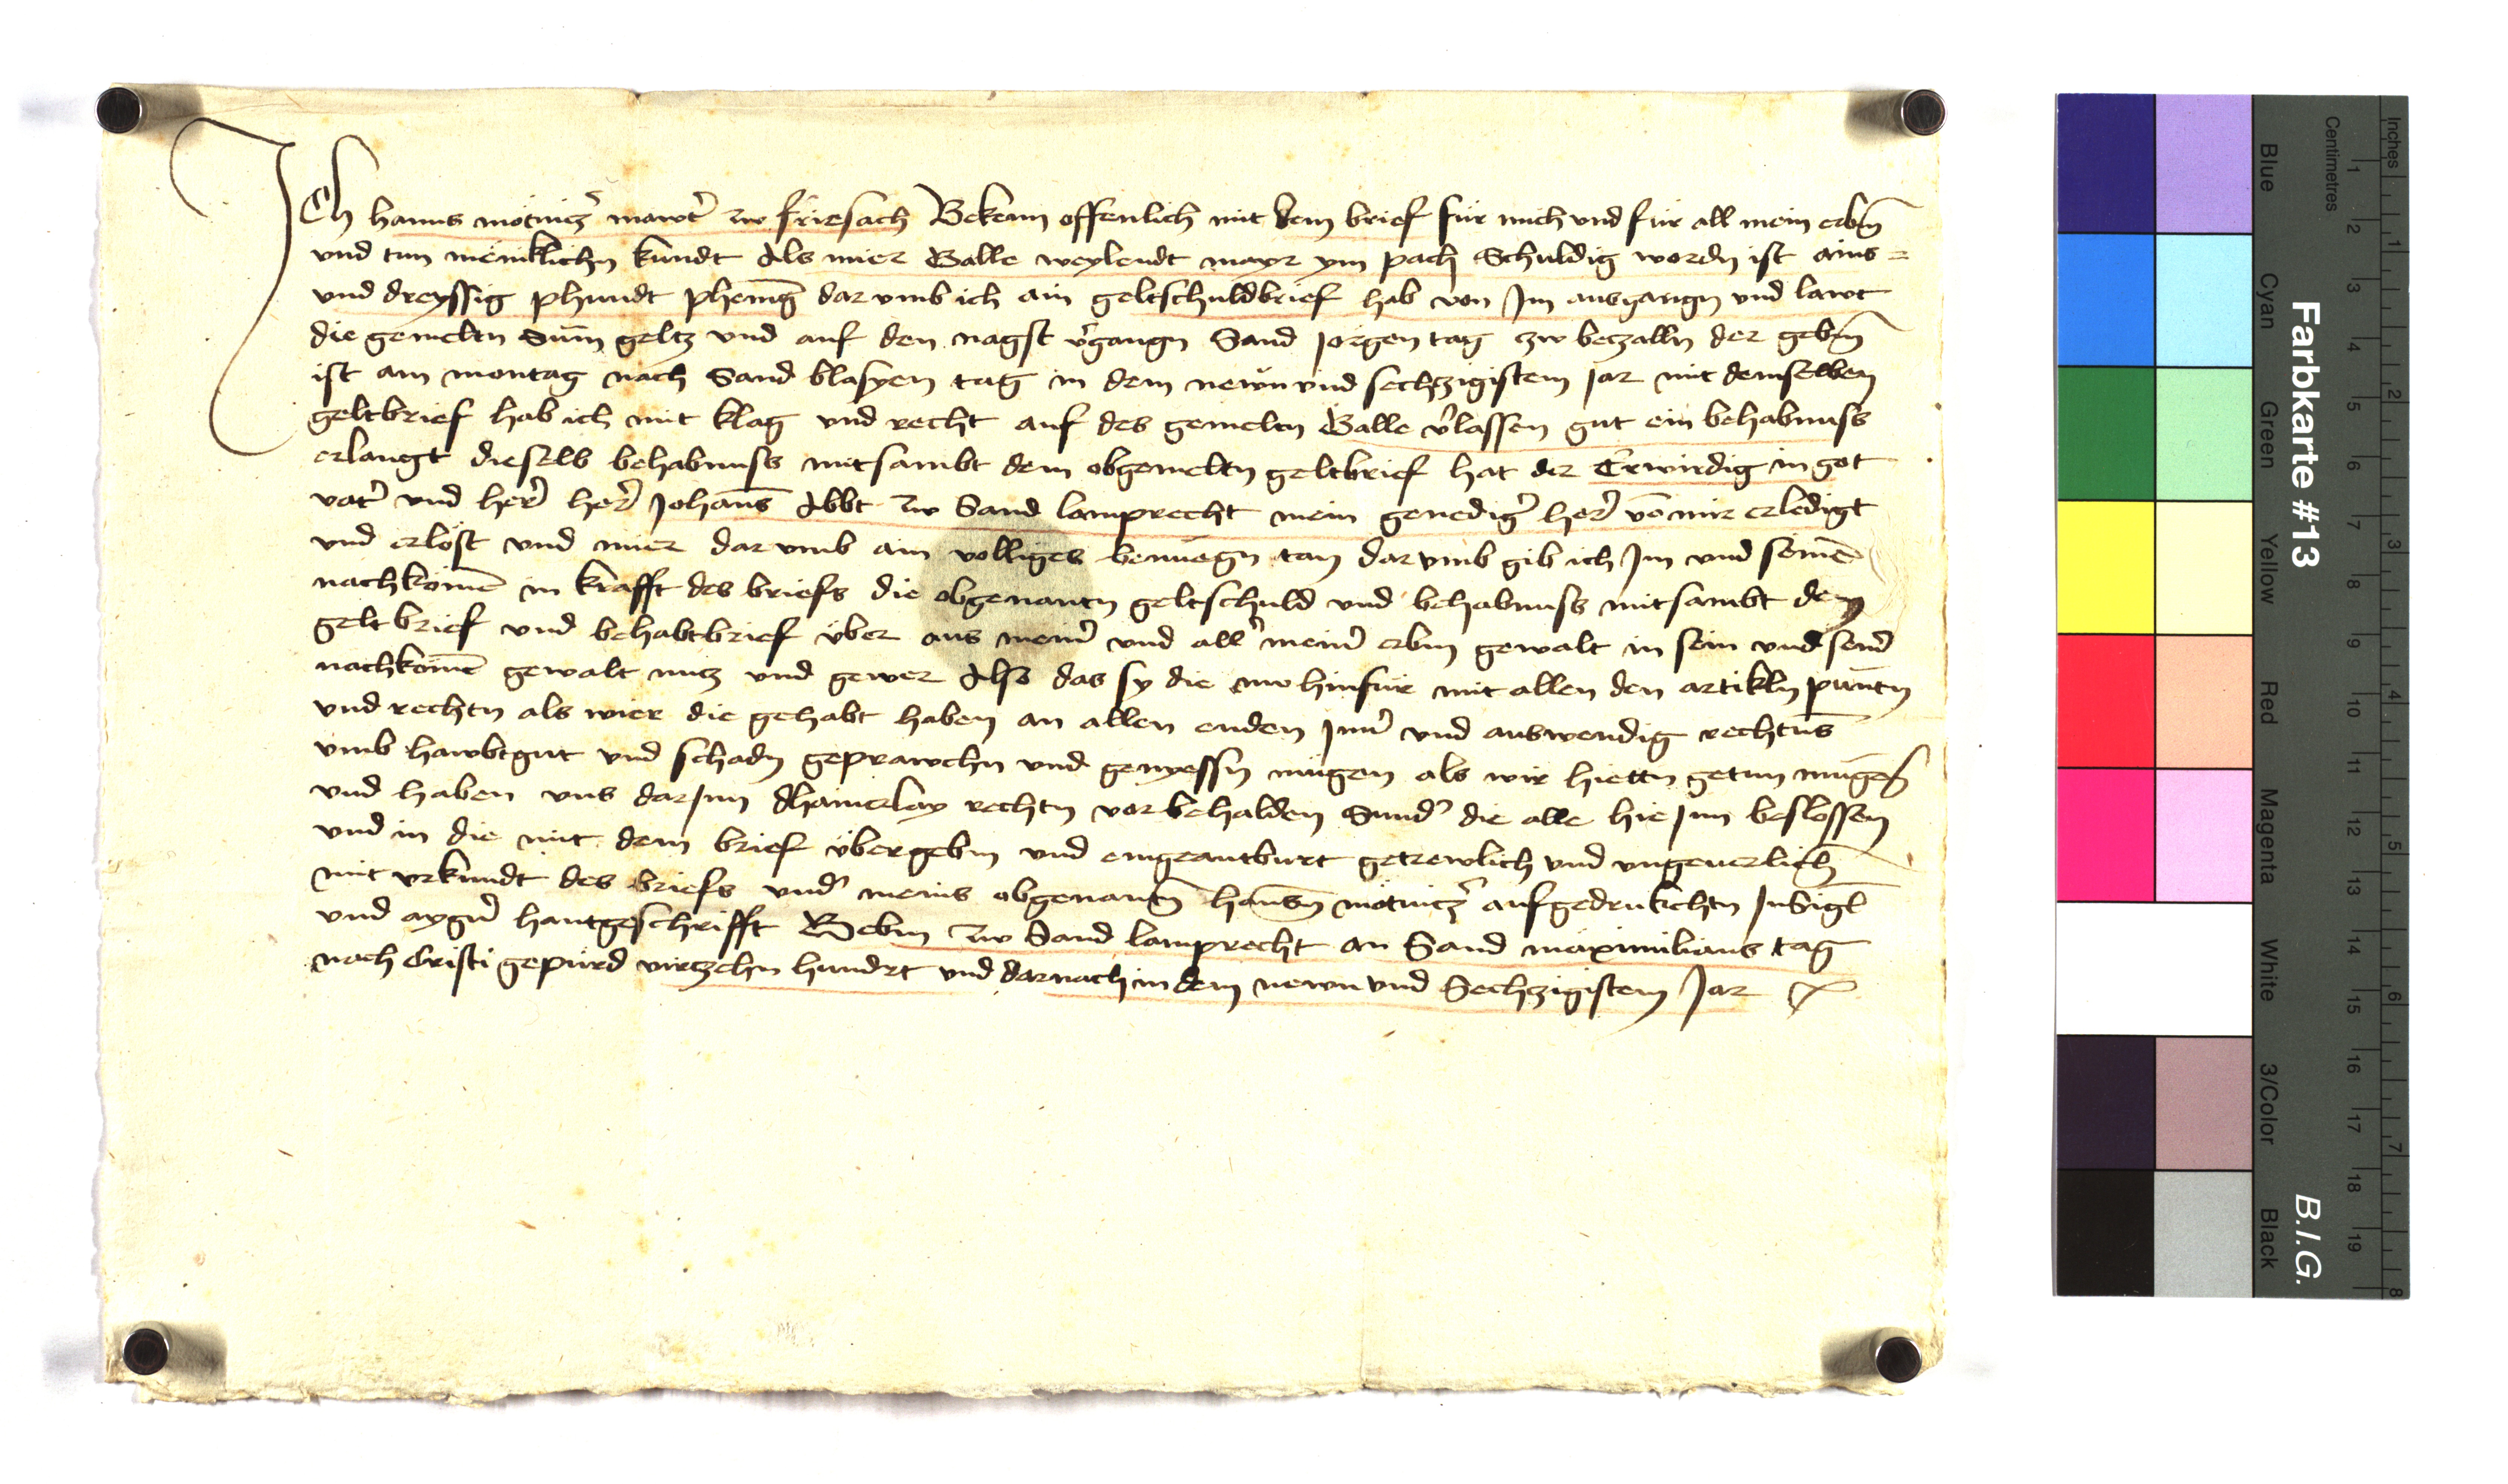 Ich hanns motnicz' mawt' zw friesach Bekenn offenlich mit dem brief für mich und für all mein erbm
und tun meniklichn kundt Als mier Galle weylendt mayr ym pach Schuldig wordn ist ains=
und dreyssig phundt phening dar umb ich ain geltschuldbrief hab von Jm ausgangn und lawt
die gemeltn Sum geltz und auf den nagst v'gangn Sand Jorgen tag zw beczalln der gebm
ist am montag nach Sand blasyen tag in dem newn und sechzigistem Jar mit demselben
geltbrief hab ich mit klag und recht auf des gemeltn Galle v'lassen gut ein behabnuss
erlangt dieselb behabnuss mitsambt dem obgemeltn geltbrief hat der Erwirdig in got
vat' und her' her' Johans Abbt zw Sand lamprecht mein genedig' her' vo mir erledigt
und erlöst und mier dar umb ain volliges benuegn tan dar umb gib ich Jm und seine
nachkome in krafft des briefs die obgenantn geltschuld und behabnuss mitsambt dem
gelt brief und behabtbrief über aus mein' und all' mein' erbm gewalt in sein und sein'
nachkome gewalt nucz und gewer Also das sy die nw hinfür mit allen den artikln puntn
und rechtn als wier die gehabt haben an allen enden Jnn' und auswendig rechtns
umb hawbtgut und schadn geprawchn und genyessn mügen als wir hiettn getun mugen
und haben uns darJnn dhainerlay rechtn vor behalden Sund' die alle hieJnn beslossen
und in die mit dem brief übergebm und eingeantburt getrewlich und ungeuerlich
mit urkundt des briefs und' meins obgenantn hansn motnicz' aufgedrukchtn Jnsigl
und aygn' hantgeschrifft Gebm zw Sand lamprecht an Sand maximilians tag
nach Cristi gepürd virczehn hundrt und darnach in dem newn und Sechzigistem Jar
Farbkarte #13
B.I.G.
Centimetres
Inches
Blue
Cyan
Green
Yellow
Red
Magenta
White
3/Color
Black
1 2 3 4 5 6 7 8 9 10 11 12 13 14 15 16 17 18 19
1 2 3 4 5 6 7 8